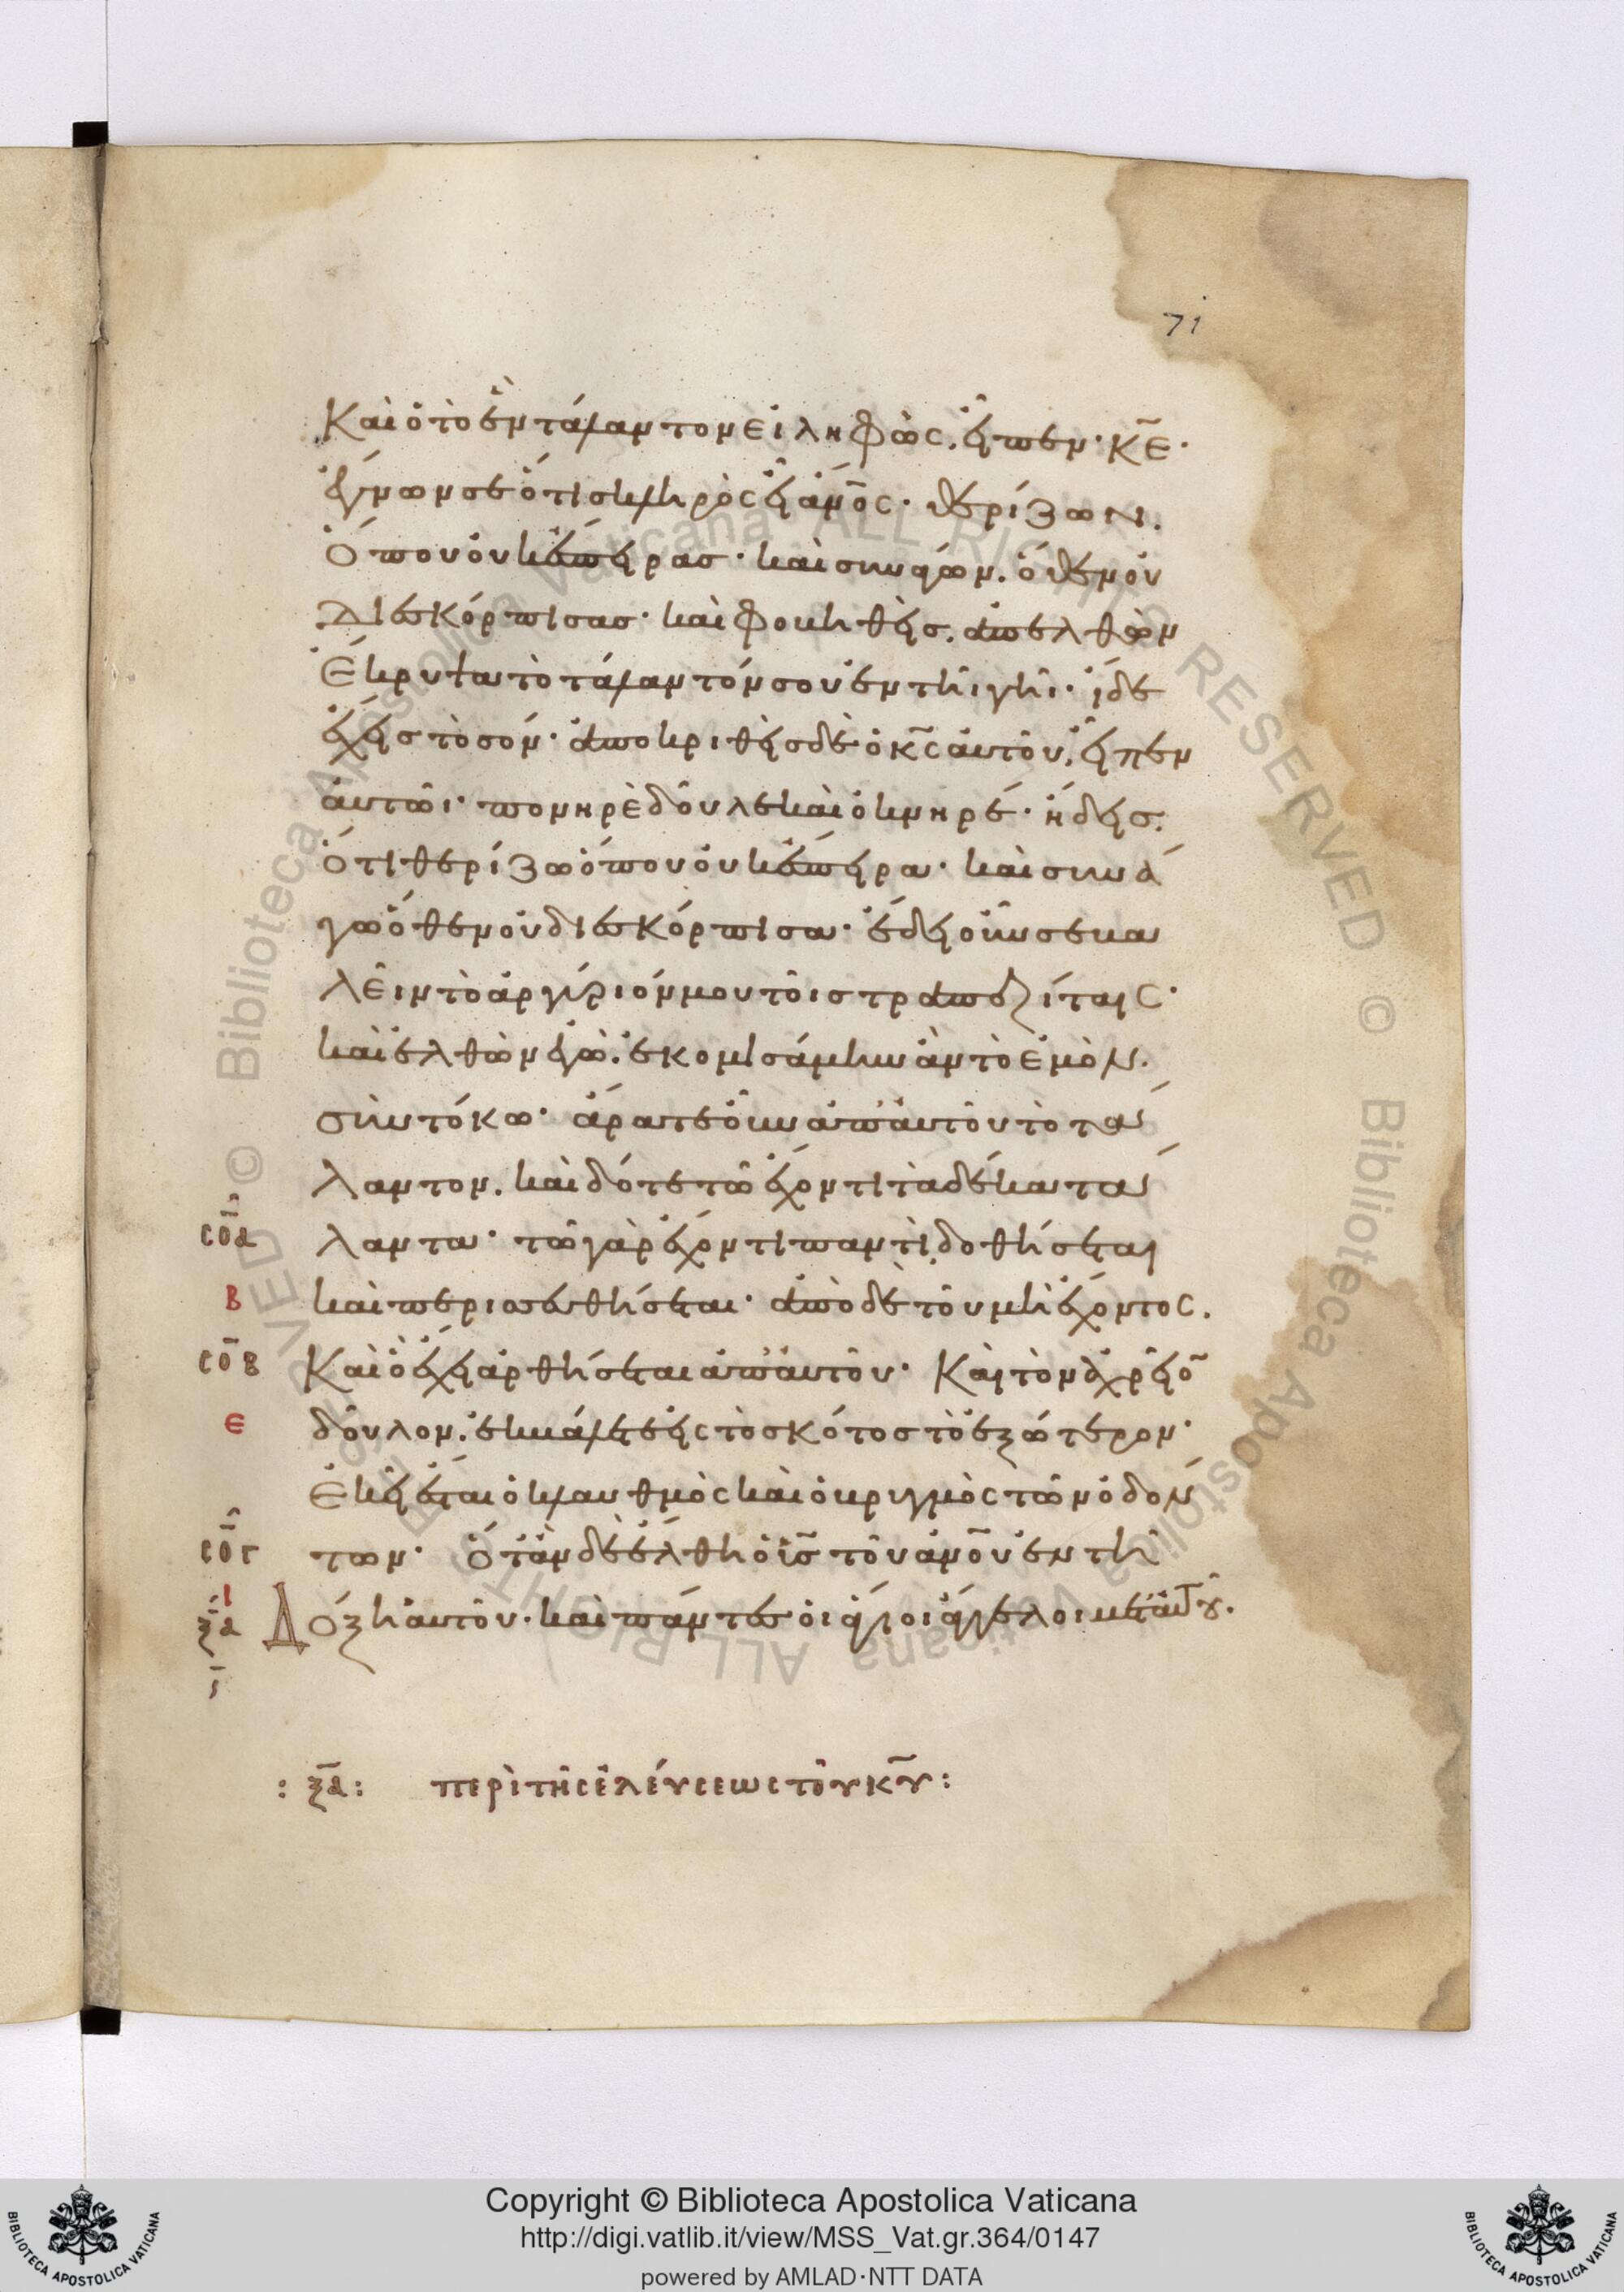 71
Καὶ ὁ τὸ ἓν τάλαντον εἰληφὼς. εἶπεν· κ̅ε̅·
ἔγνων σε ὅτι σκληρὸς εἶ ἄν̅ο̅ς· θερίζων.
Ὅπου οὐκ ἔσπειρας· καὶ συνάγων. ὅθεν οὐ
Διεσκόρπισας· καὶ φοβηθεὶς. ἀπελθὼν
Ἔκρυψα τὸ τάλαντόν σου ἐν τῆι γῆι· ἴδε
ἔχεις τὸ σόν· ἀποκριθεὶς δὲ ὁ κ̅ς̅ αὐτοῦ. εἶπεν
αὐτῶι· πονηρὲ δοῦλε καὶ ὀκνηρέ· ἤδεις.
Ὅτι θερίζω ὅπου οὐκ ἔσπειρα· καὶ συνά
γω ὅθεν οὐ διεσκόρπισα· ἔδει οὖν σε βα
λεῖν τὸ ἀργύριόν μου τοῖς τραπεζίταις·
καὶ ἐλθὼν ἐγὼ. ἐκομισάμην ἂν τὸ ἐμὸν.
σὺν τόκω· ἄρατε οὖν ἀπ' αὐτοῦ τὸ τά
λαντον. καὶ δότε τῶ ἔχοντι τὰ δέκα τά
σ̅ο̅α λαντα· τῶ γὰρ ἔχοντι παντὶ. δοθήσεται
β καὶ περισσευθήσεται· ἀπὸ δὲ τοῦ μὴ ἔχοντος.
σ̅ο̅β Καὶ ὃ ἔχει ἀρθήσεται ἀπ' αὐτοῦ· Καὶ τὸν ἀχρεῖο̅
ε δοῦλον. ἐκβάλετε εἰς τὸ σκότος τὸ ἐξώτερον·
Ἐκεῖ ἔσται ὁ κλαυθμὸς καὶ ὁ βρυγμὸς τῶν ὀδόν
σ̅ο̅γ των· Ὅταν δὲ ἔλθη ὁ ι̅σ̅ τοῦ ἀν̅ο̅υ ἐν τῆ
ι ξ̅α Δόξη αὐτοῦ· καὶ πάντες οἱ ἅγιοι ἄγγελοι μετ' αὐτου.
: ξ̅α̅: περὶ τῆς ἐλεύσεως τοῦ κ̅υ̅:
© Biblioteca Apostolica Vaticana ALL RIGHTS RESERVED © Biblioteca Apostolica Vaticana ALL RIGHTS RESERVED
Copyright © Biblioteca Apostolica Vaticana
http://digi.vatlib.it/view/MSS_Vat.gr.364/0147
powered by AMLAD·NTT DATA
BIBLIOTECA APOSTOLICA VATICANA
BIBLIOTECA APOSTOLICA VATICANA